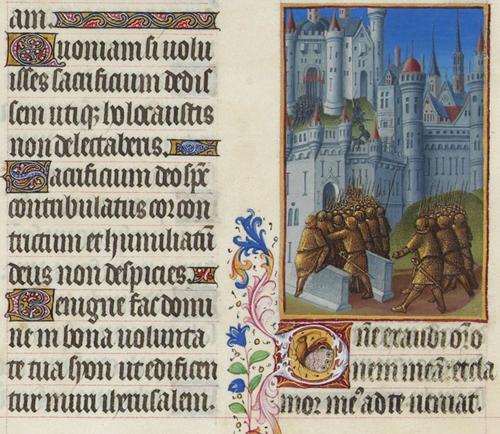 am.
Quoniam si uolu
isses sacrificium dedis
sem utiq; holocaustis
non delectaberis.
Sacrificium deo sp̄s
contribulatus cor con
trictum et humiliatū
deus non despicies.
Benigne fac domi
ne in bona uolunta
te tua syon ut edificen
tur muri iherusalem.
Dn̄e exaudi or̄o
nem meā et cla
mor meꝰ ad te ueniat.